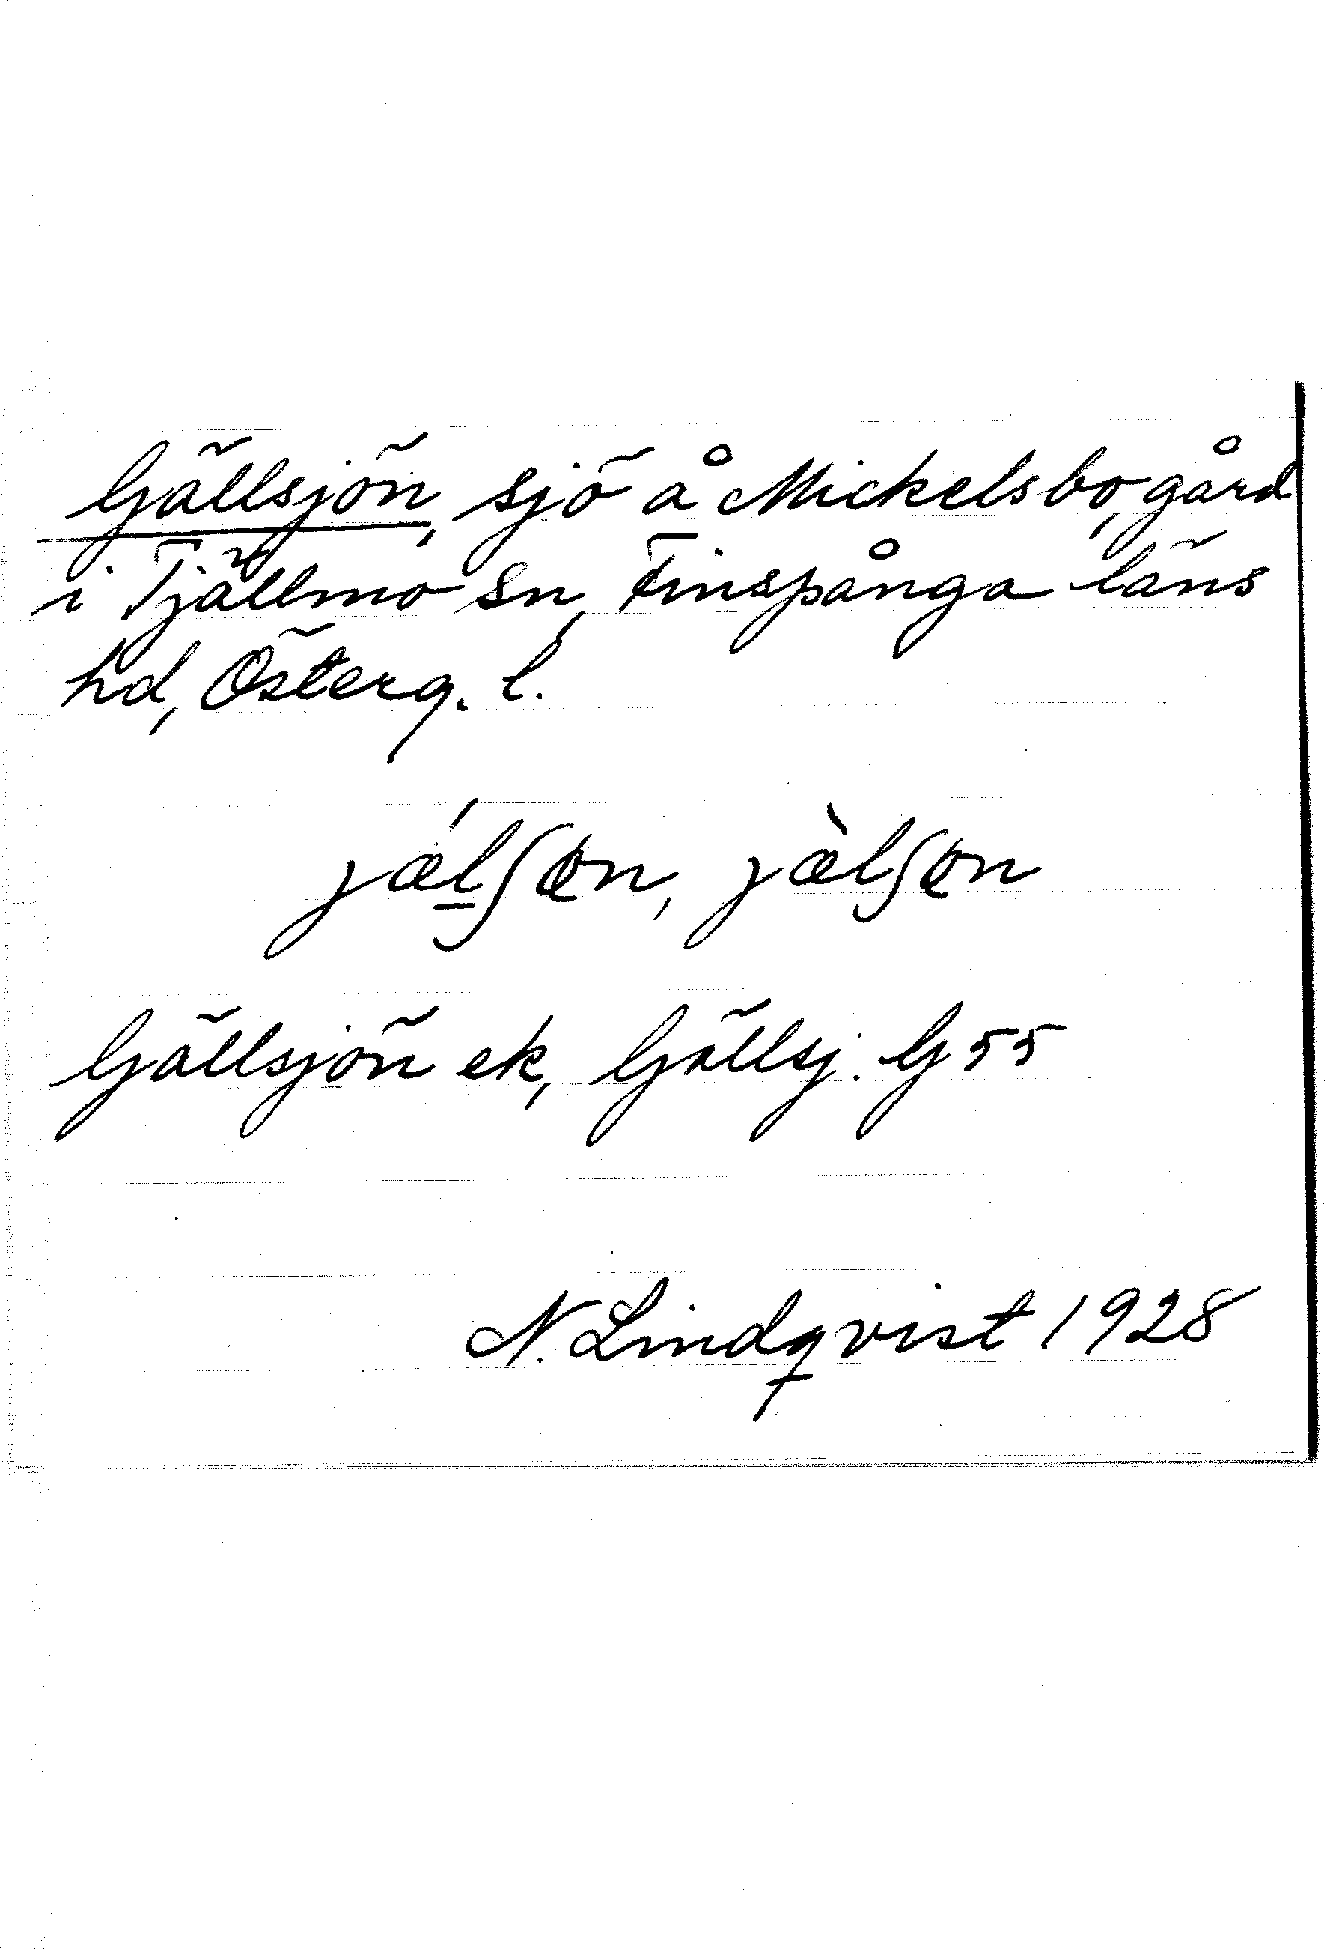 Gällsjön, sjö å Mickelsbo, gård
i Tjällmo sn, Finspånga läns
hd, Österg. l.
jǽlʃøn, jæ̀lʃøn
Gällsjön ek, Gällsj. G 55
N. Lindqvist 1928